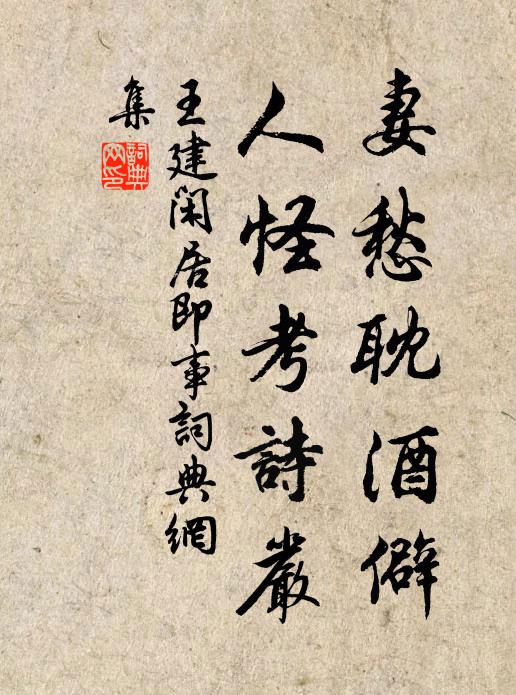 妻愁耽酒僻
人怪考詩嚴
王建閑居即事詞典網
集
詞典網印